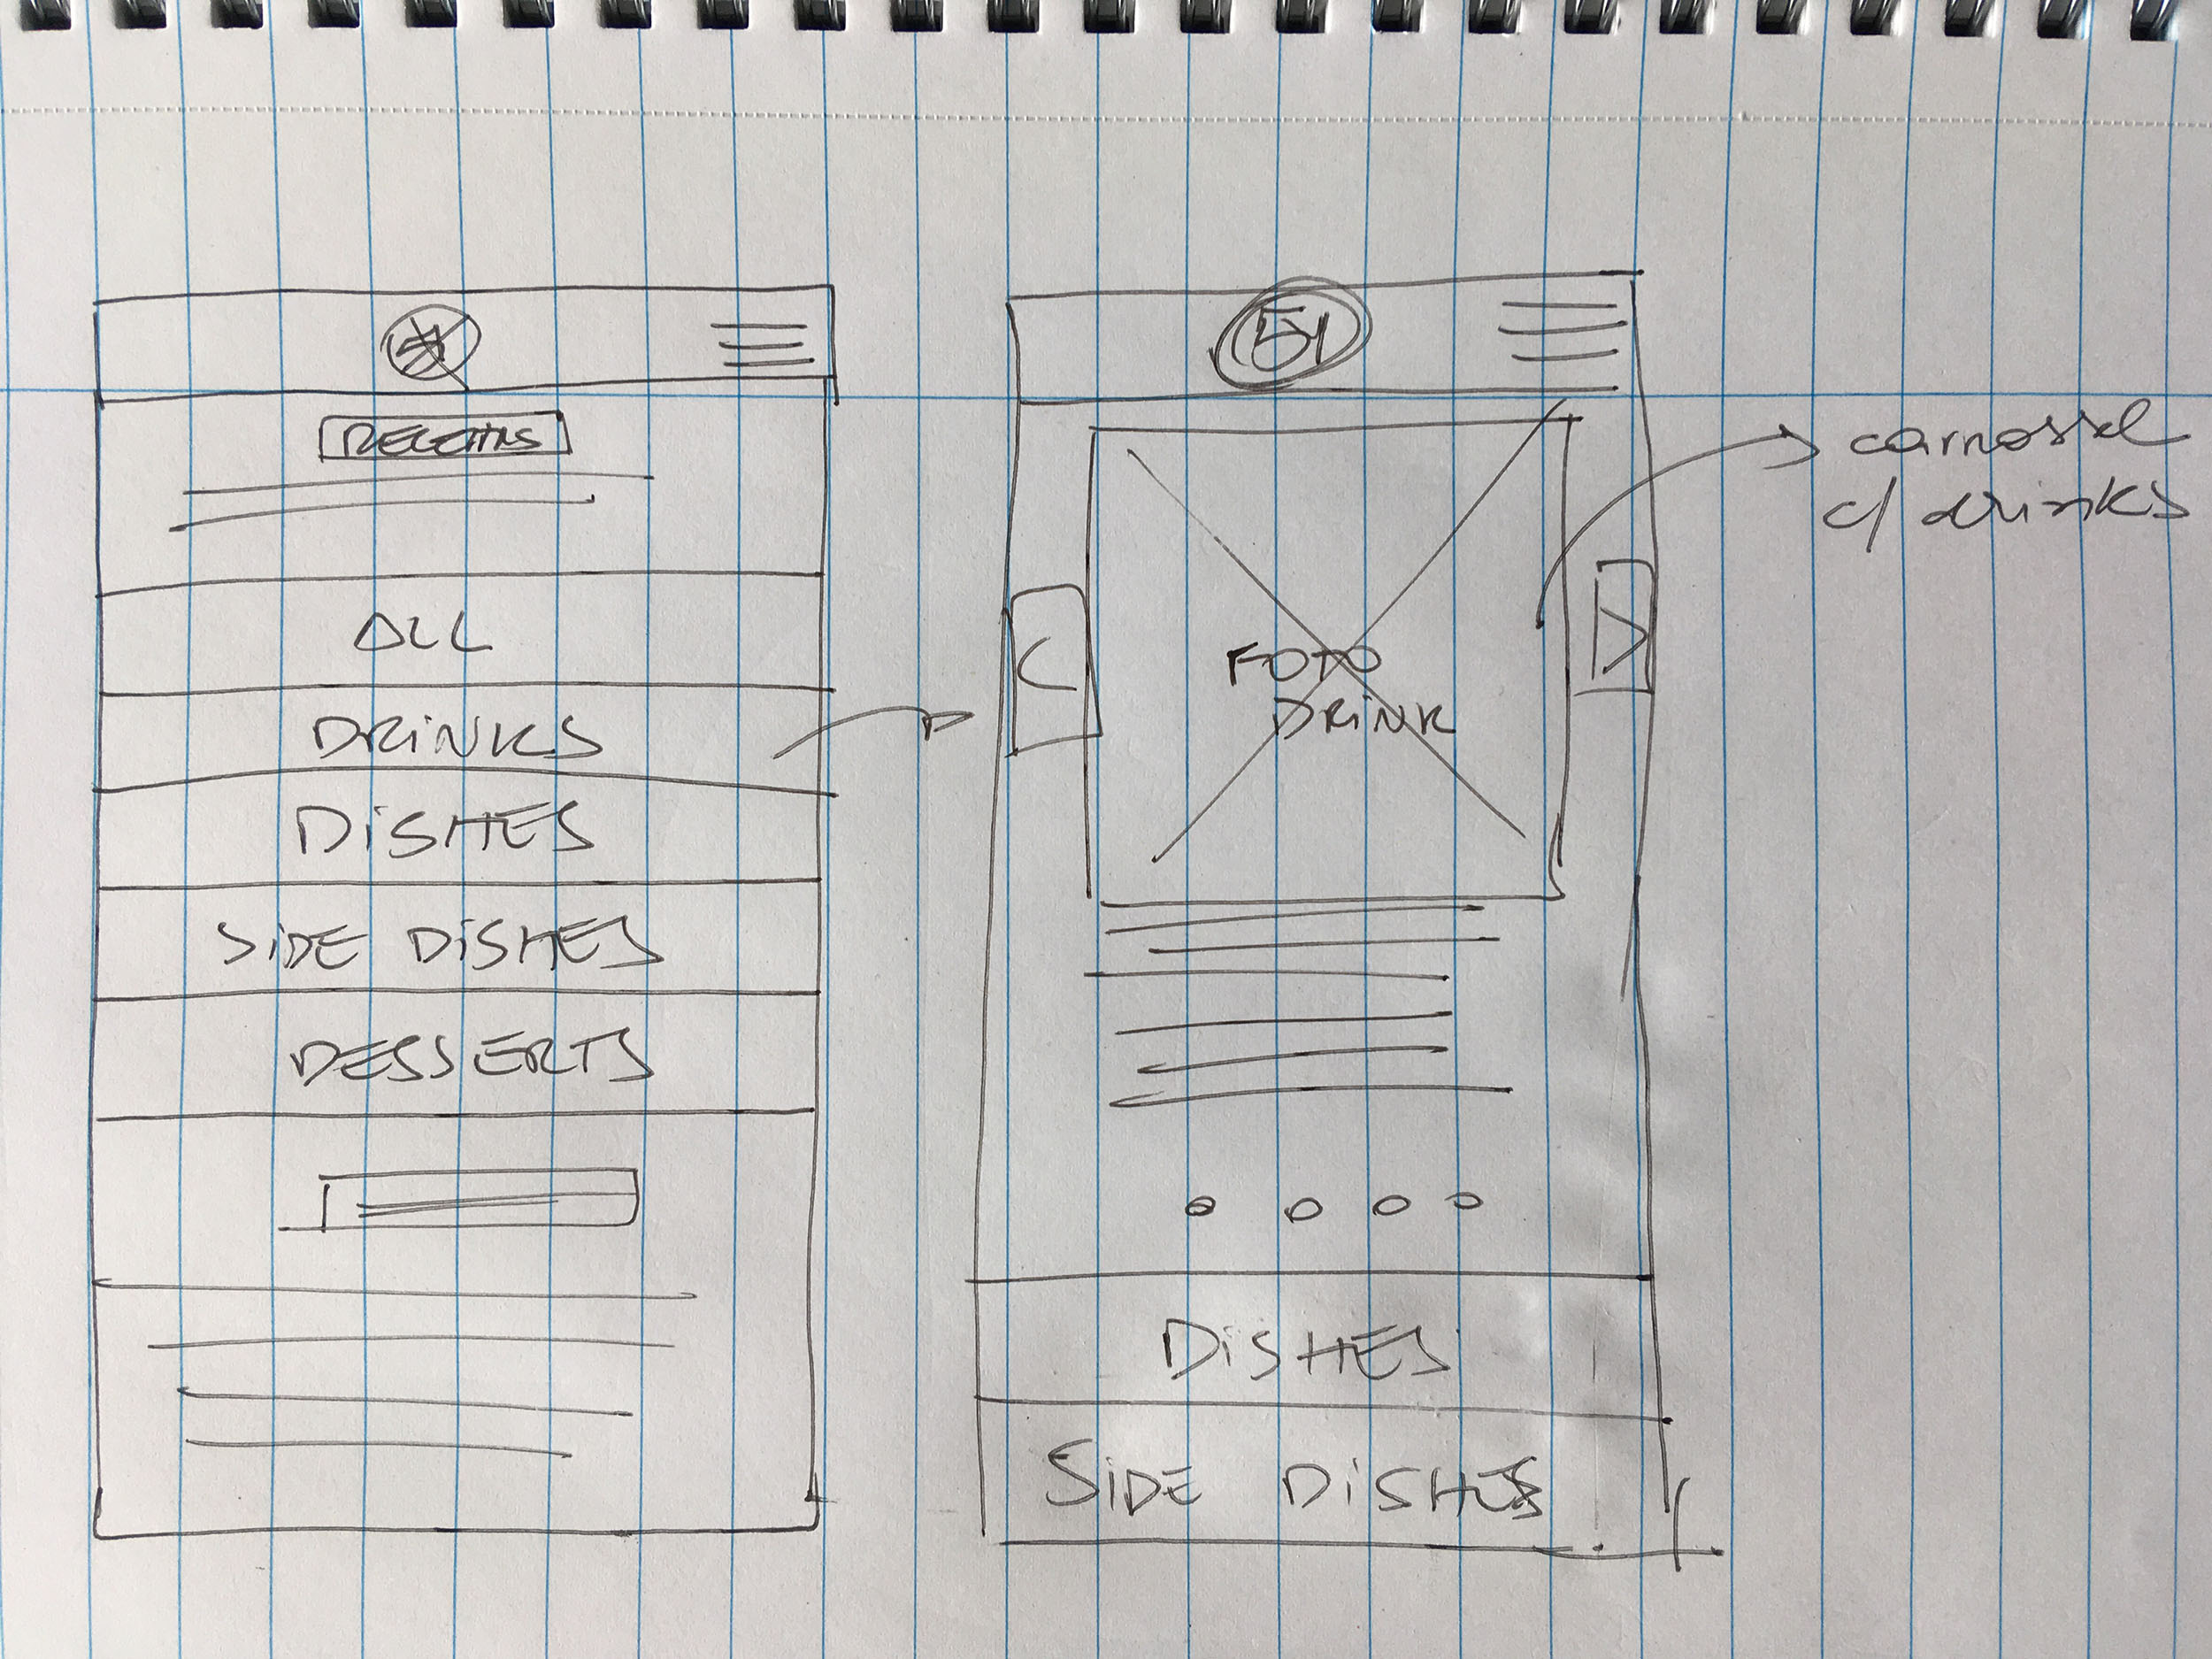 RECEITAS
ALL
DRINKS
DISHES
SIDE DISHES
DESSERTS
51
FOTO
DRINK
carrossel
c/ drinks
DISHES
SIDE DISHES